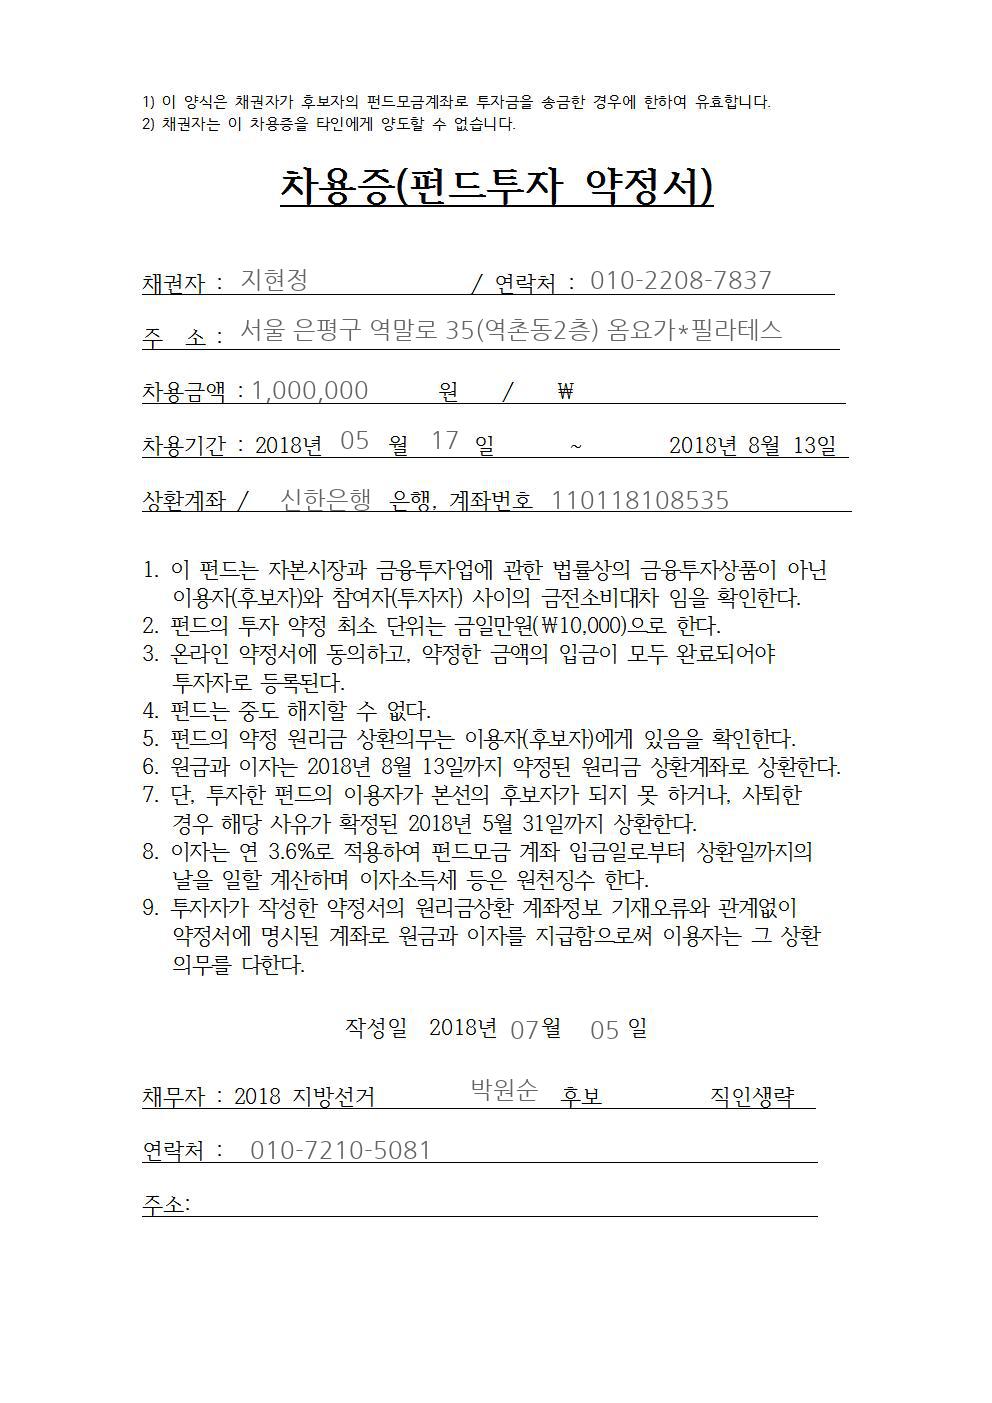 1) 이 양식은 채권자가 후보자의 펀드모금계좌로 투자금을 송금한 경우에 한하여 유효합니다.
2) 채권자는 이 차용증을 타인에게 양도할 수 없습니다.
차용증(펀드투자 약정서)
채권자 : 지현정 / 연락처 : 010-2208-7837
주 소 : 서울 은평구 역말로 35(역촌동2층) 옴요가*필라테스
차용금액 : 1,000,000 원 / ₩
차용기간 : 2018년 05 월 17 일 ~ 2018년 8월 13일
상환계좌 / 신한은행 은행, 계좌번호 110118108535
1. 이 펀드는 자본시장과 금융투자업에 관한 법률상의 금융투자상품이 아닌
이용자(후보자)와 참여자(투자자) 사이의 금전소비대차 임을 확인한다.
2. 펀드의 투자 약정 최소 단위는 금일만원(₩10,000)으로 한다.
3. 온라인 약정서에 동의하고, 약정한 금액의 입금이 모두 완료되어야
투자자로 등록된다.
4. 펀드는 중도 해지할 수 없다.
5. 펀드의 약정 원리금 상환의무는 이용자(후보자)에게 있음을 확인한다.
6. 원금과 이자는 2018년 8월 13일까지 약정된 원리금 상환계좌로 상환한다.
7. 단, 투자한 펀드의 이용자가 본선의 후보자가 되지 못 하거나, 사퇴한
경우 해당 사유가 확정된 2018년 5월 31일까지 상환한다.
8. 이자는 연 3.6%로 적용하여 펀드모금 계좌 입금일로부터 상환일까지의
날을 일할 계산하며 이자소득세 등은 원천징수 한다.
9. 투자자가 작성한 약정서의 원리금상환 계좌정보 기재오류와 관계없이
약정서에 명시된 계좌로 원금과 이자를 지급함으로써 이용자는 그 상환
의무를 다한다.
작성일 2018년 07월 05 일
채무자 : 2018 지방선거 박원순 후보 직인생략
연락처 : 010-7210-5081
주소: